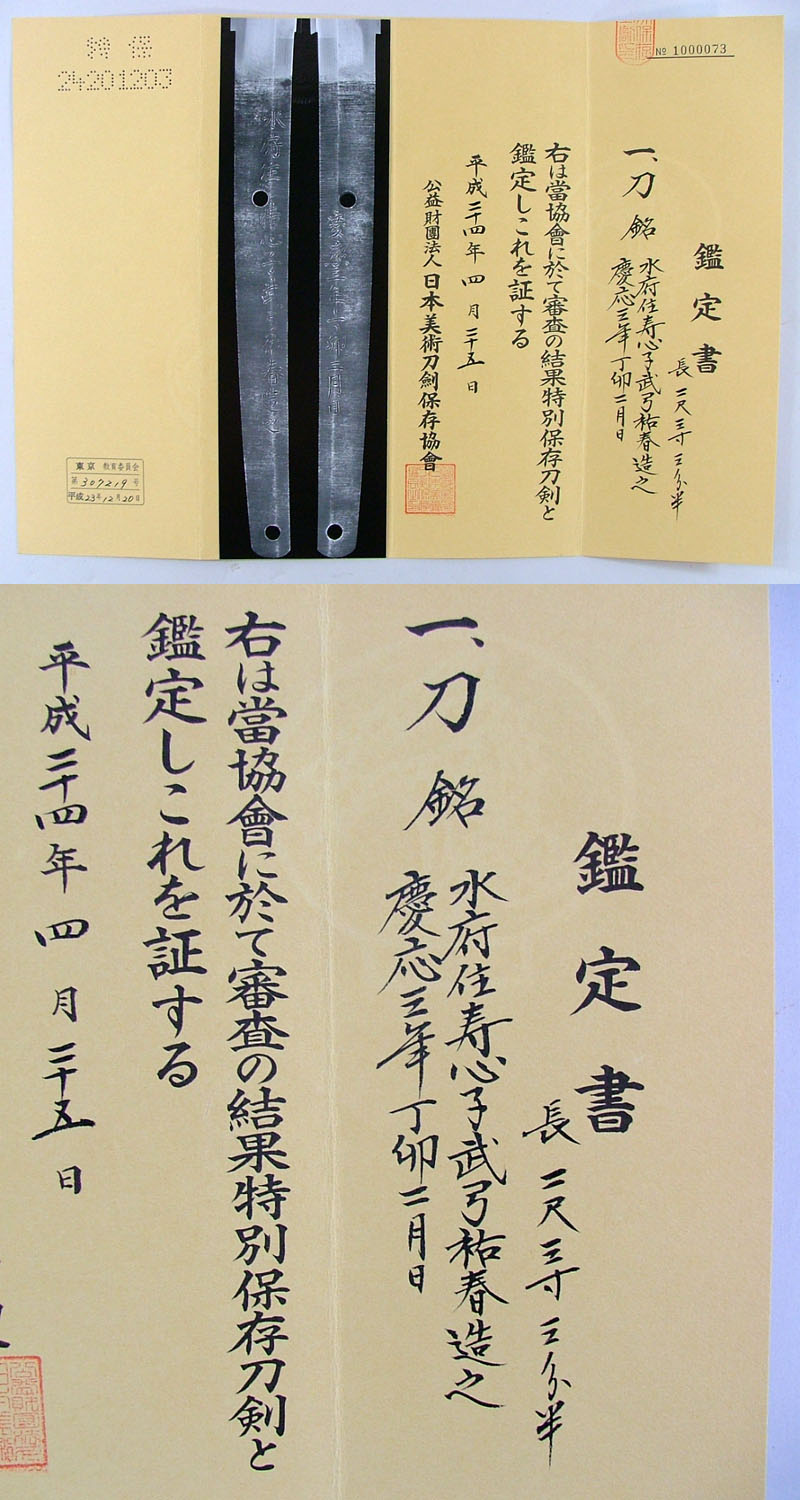 № 1000073
鑑定書
長 二尺三寸三分半
一、刀 銘 水府住寿心子武弓祐春造之
慶応三年丁卯二月日
右は當協會に於て審査の結果特別保存刀剣と
鑑定しこれを証する
平成二十四年 四 月 二十五 日
公益財團法人 日本美術刀劍保存協會
特保
24201203
東京 教育委員会
第 307219 号
平成 23年 12月 20日
鑑定書
長 二尺三寸三分半
一、刀 銘 水府住寿心子武弓祐春造之
慶応三年丁卯二月日
右は當協會に於て審査の結果特別保存刀剣と
鑑定しこれを証する
平成二十四年 四 月 二十五 日